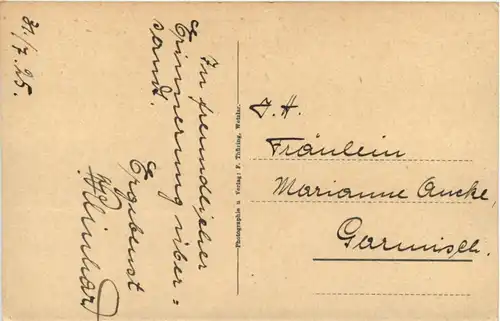 31./7.25.
In freundlicher
Erinnerung über=
sandt.
Ergebenst
Photographie u. Verlag: F. Thüring, Wetzlar.
Fräulein
Marianne Aucke,
Garmisch.